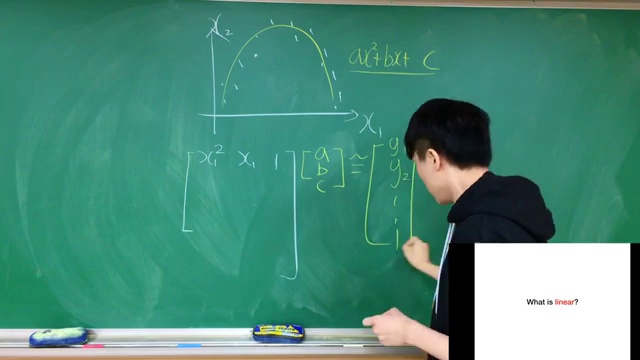 x₂
ax²+bx+ c
x₁
x₁² x₁ 1 a ≃ y
b y₂
c
What is linear?